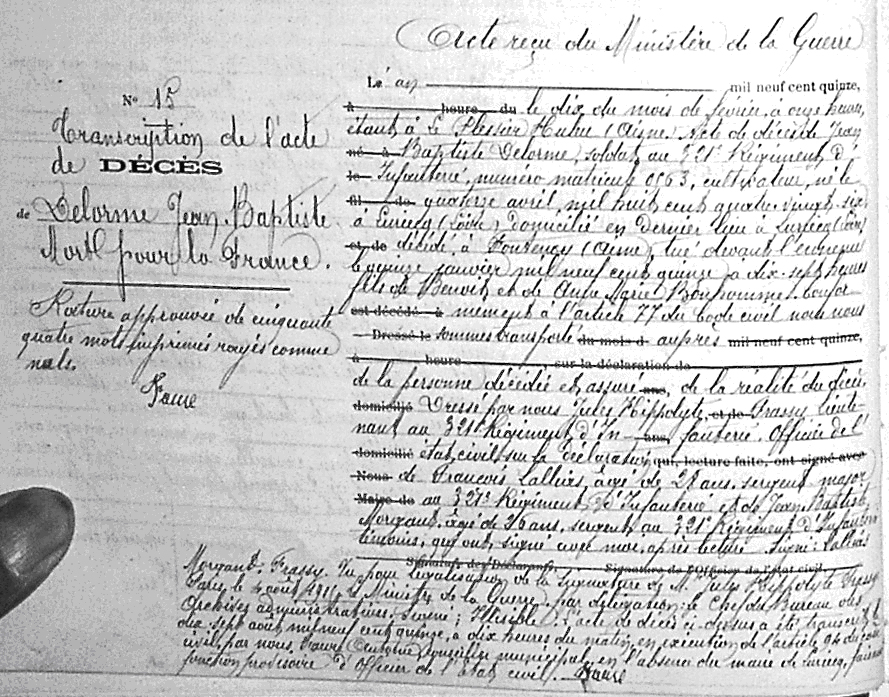 Acte reçu du Ministère de la Guerre
N° 15
Transcription de l'acte
de DÉCÈS
de Delorme Jean Baptiste
Mort pour la France.
Rature approuvée de cinquante
quatre mots imprimés rayés comme
nuls.
Faure
L'an mil neuf cent quinze,
à heure du le dix du mois de février, à onze heures,
étant à Le Plessier Huleu (Aisne). Acte de décès de Jean
né à Baptiste Delorme, soldat au 321e Régiment d'
le Infanterie, numéro matricule 0563, cultivateur, né le
fil de quatorze avril mil huit cent quatre vingt six
à (Loire), domicilié en dernier lieu à (Loire)
et de décédé à Fontenoy (Aisne), tué devant l'ennemi
le quinze janvier mil neuf cent quinze à dix sept heures
fils de Benoit et de Marie Bonhomme. Confor
est décédé à mément à l'article 77 du code civil nous nous
Dressé le sommes transporté du mois d auprès mil neuf cent quinze,
à heure sur la déclaration de
de la personne décédée et assuré ans, de la réalité du décès.
domicilié Dressé par nous Jules Hippolyte, et de Frassy, lieute-
nant au 321e Régiment d'In ans, fanterie. Officier de l'
domicilié état civil sur la déclaration qui, lecture faite, ont signé avec
Nous de François Lallias, âgé de 28 ans, sergent major
Maire de au 321e Régiment d'Infanterie et de Jean Baptiste
Morgant, âgé de 26 ans, sergent au 321e Régiment d'Infanterie
témoins, qui ont signé avec moi après lecture. Signé: Lallias
Signature des Déclarants. Signature de l'Officier de l'état civil.
Morgant. Frassy. Vu pour légalisation de la signature de M. Jules Hippolyte Frassy
Paris, le août 1915, le Ministre de la Guerre, par délégation: le Chef du Bureau des
Archives administratives. Signé: Illisible. L'acte de décès ci-dessus a été transcrit le
dix sept août mil neuf cent quinze, à dix heures du matin, en exécution de l'article 94 du code
civil, par nous, Faure conseiller municipal, en l'absence du maire de faisant
fonction provisoire d'Officier de l'état civil. Faure